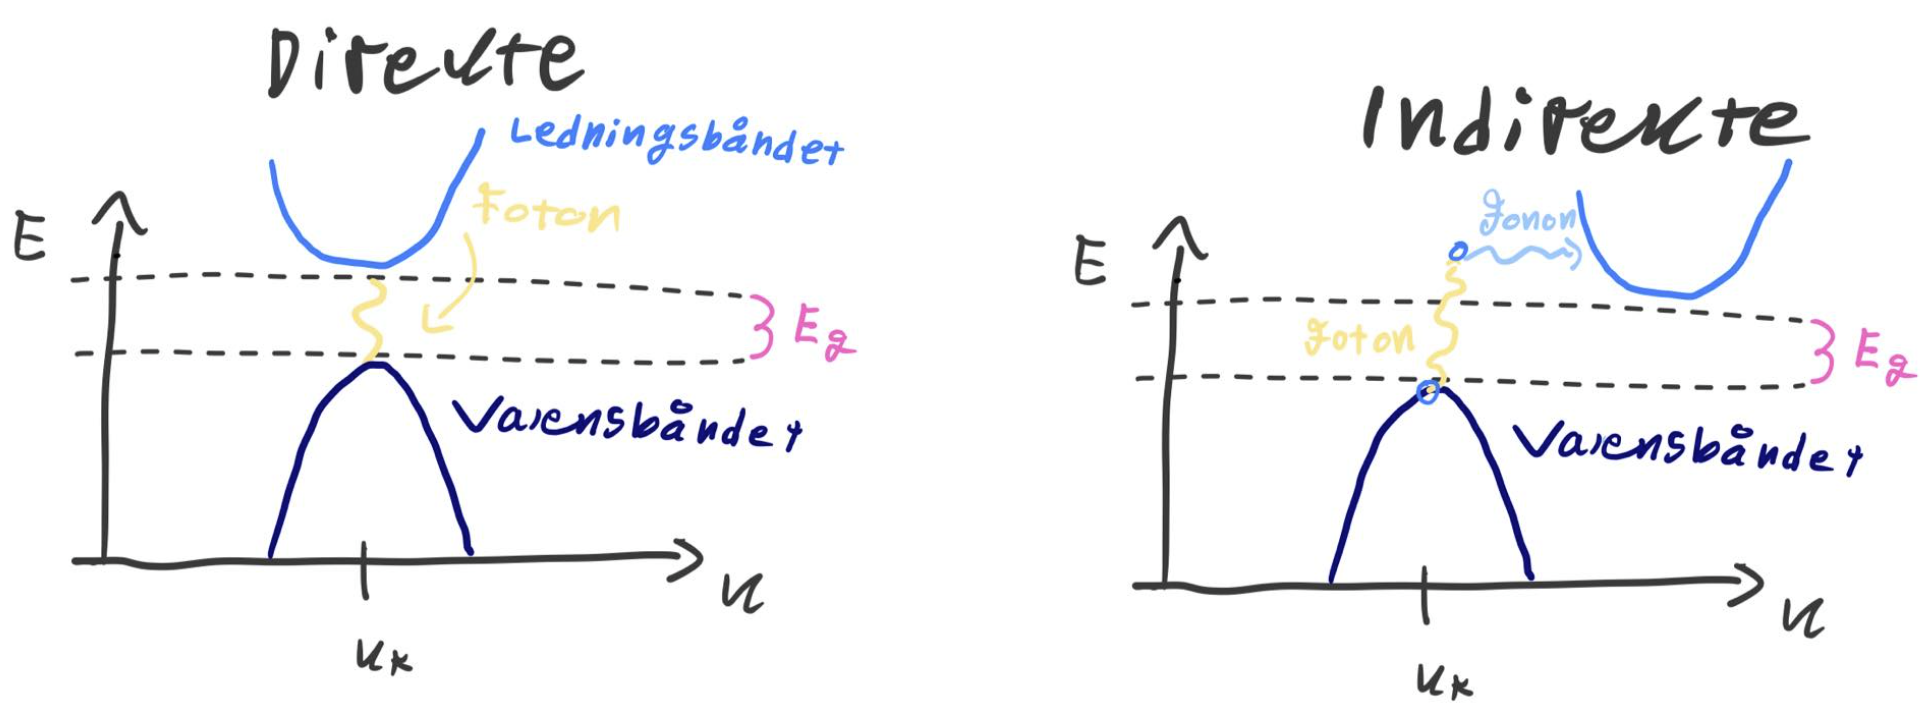 Direkte
Ledningsbåndet
Foton
E
Eg
Valensbåndet
k
k*
Indirekte
Fonon
E
Foton
Eg
Valensbåndet
k
k*